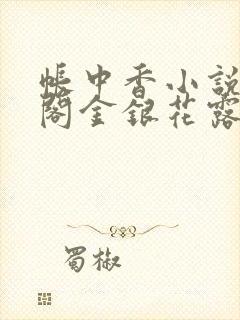 帳中香小說
閣金銀花露
蜀椒